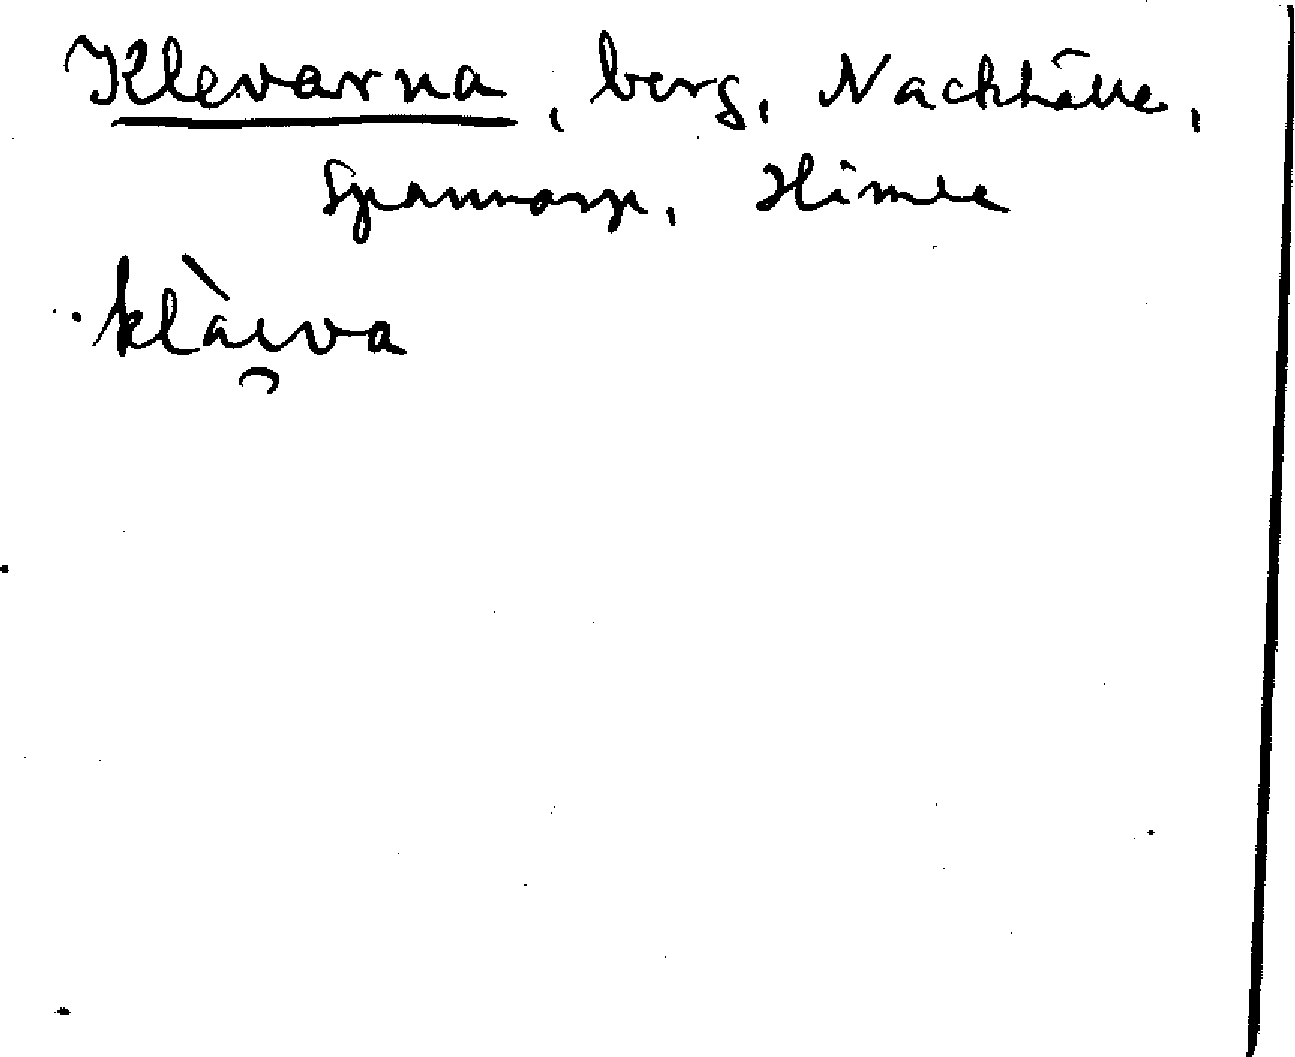 Klevarna, berg, Nackhälle,
Spannarp, Himle
klài̯va